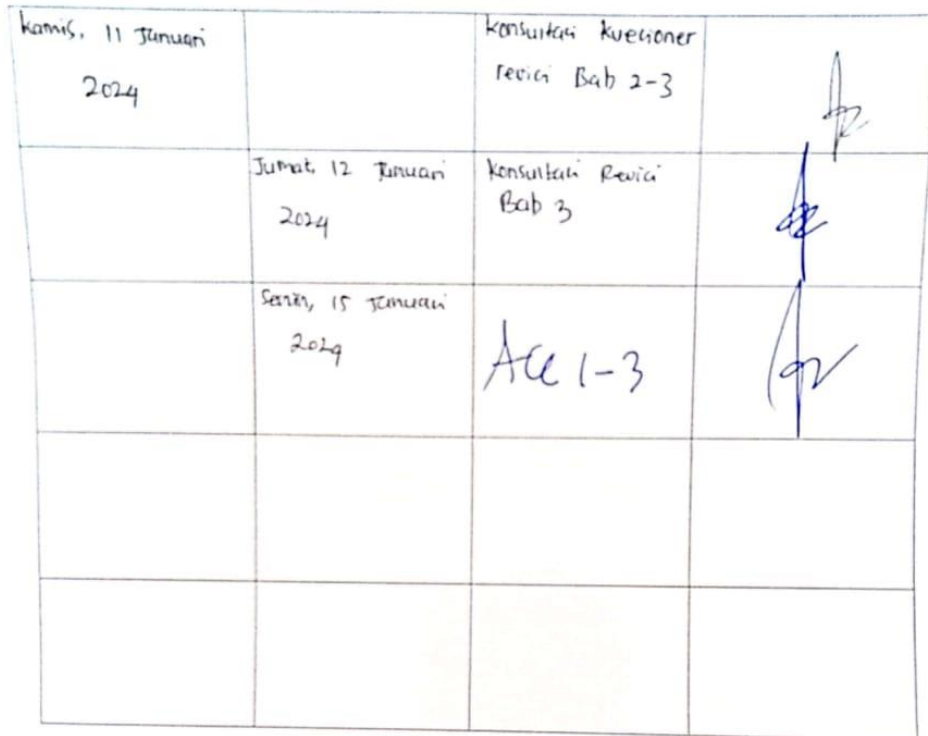 Kamis, 11 Januari
2024
Konsultasi kuesioner
revisi Bab 2-3
Jumat, 12 Januari
2024
Konsultasi Revisi
Bab 3
Senin, 15 Januari
2024
Acc 1-3